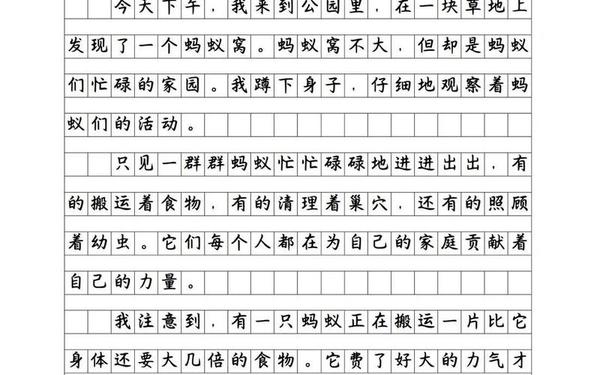 今天下午，我来到公园里，在一块草地上
发现了一个蚂蚁窝。蚂蚁窝不大，但却是蚂蚁
们忙碌的家园。我蹲下身子，仔细地观察着蚂
蚁们的活动。
只见一群群蚂蚁忙忙碌碌地进进出出，有
的搬运着食物，有的清理着巢穴，还有的照顾
着幼虫。它们每个人都在为自己的家庭贡献着
自己的力量。
我注意到，有一只蚂蚁正在搬运一片比它
身体还要大几倍的食物。它费了好大的力气才